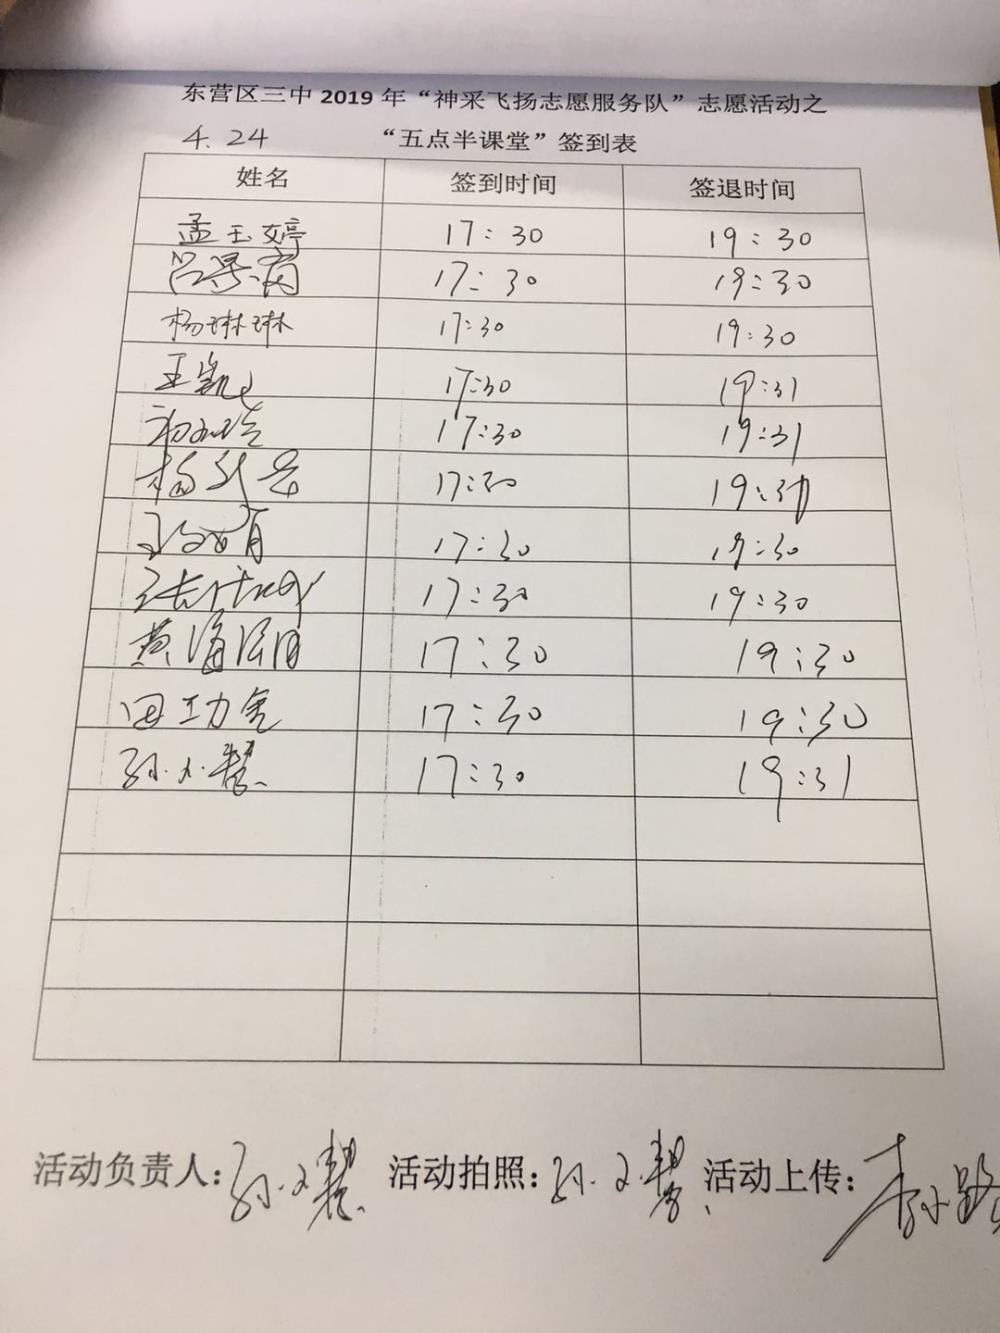 东营区三中2019年“神采飞扬志愿服务队”志愿活动之
4.24 “五点半课堂”签到表
姓名 签到时间 签退时间
孟玉婷 17:30 19:30
17:30 19:30
杨琳琳 17:30 19:30
王凯 17:30 19:31
17:30 19:31
17:30 19:31
17:30 19:30
17:30 19:30
黄海 17:30 19:30
田功 17:30 19:30
孙文慧 17:30 19:31
活动负责人:孙文慧 活动拍照:孙文慧 活动上传: